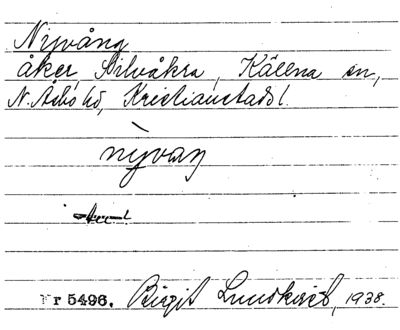 Nyvång
åker, Silvåkra, Källna sn,
N. Åsbo hd, Kristianstads l.
nỳvaŋ
Nr 5496. Birgit Lundkvist, 1938.